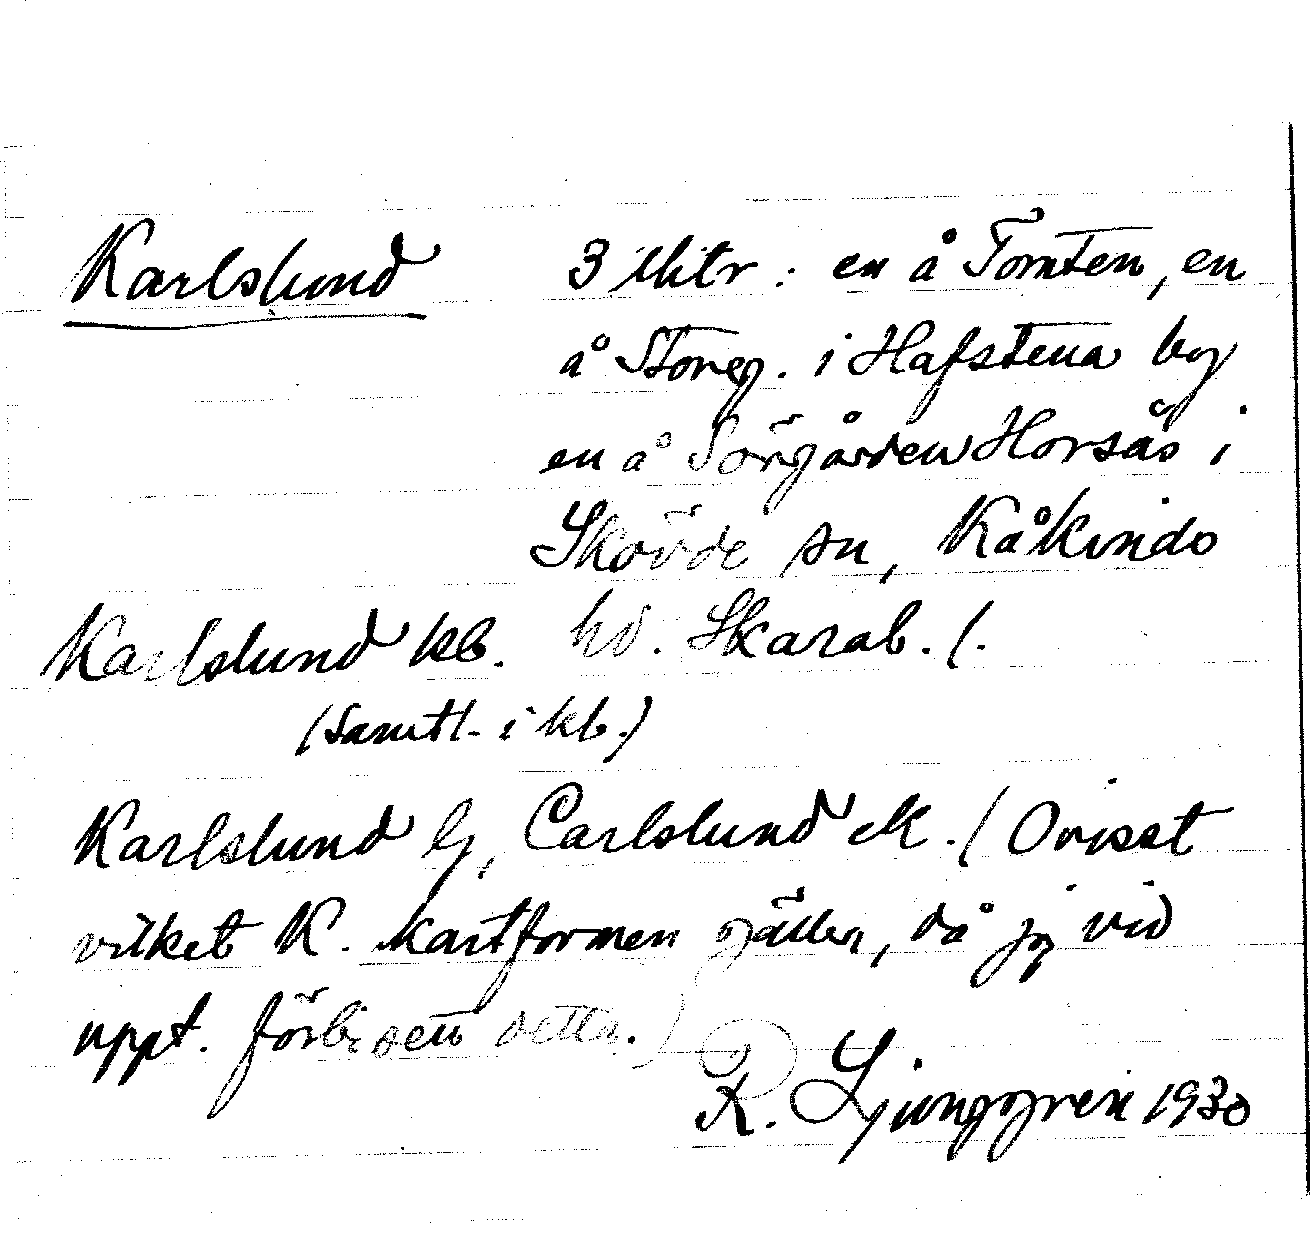 Karlslund 3 lhtr : en å Tomten, en
å Storeg. i Hafstena by
en å Sörgården Horsås i
Skövde sn, Kåkinds
Karlslund kb. hd. Skarab. l.
(Samtl. i kb.)
Karlslund G, Carlslund eK. (Ovisst
vilket K. kartformen gäller, då jg vid
uppt. förbisett detta.)
R. Ljunggren 1930